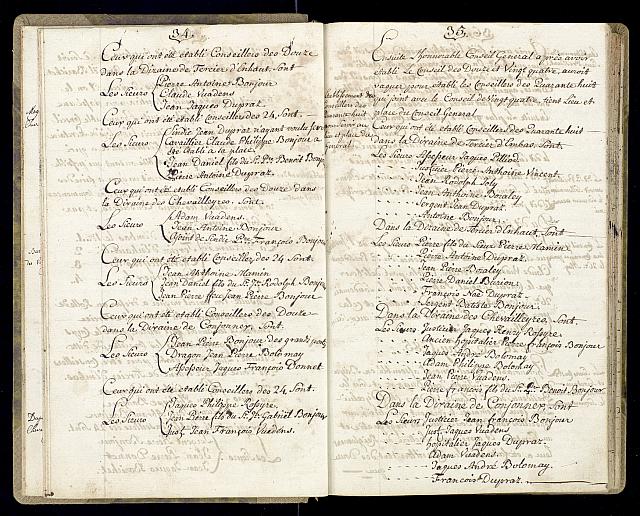 34.
Ceux qui ont été etabli Conseillers des Douze
dans la Diraine de Tercier d'Enhaut, Sont
Pierre Antoine Bonjour
Les Sieurs Claude Vuadens
Jean Jaques Dupraz
Ceux qui ont été etabli Conseillers des 24. Sont
Sindic Jean Dupraz n'ayant voulu
Les Sieurs Cavaillier Claude Philippe Bonjour a
été établi a la place
Jean Daniel fils du Sr. Benoit Bonjour
Pierre Antoine Dupraz
Ceux qui ont été etabli Conseillers des Douze dans
la Diraine des Chevailleyres, Sont
Adam Vuadens
Les Sieurs Jean Antoine Bonjour
de Sindic Pre. François Bonjour
Ceux qui ont été etabli Conseiller des 24 Sont
Jean Anthoine Mamin
Les Sieurs Jean Daniel fils du Sr. Rodolph Bonjour
Jean Pierre Bonjour
Ceux qui ont été etabli Conseillers des Douze
dans la Diraine de Conjonner, Sont
Jean Pierre Bonjour des grands
Les Sieurs Dragon Jean Pierre Bolomay
Assesseur Jaques François Donnet
Ceux qui ont été etabli Conseillers des 24 Sont
Jaques Philippe Rossyre
Les Sieurs Jean Pierre fils du Sr. Gabriel Bonjour
Just. Jean François Vuadens
35.
Ensuite l'honnorable Conseil General apres avoir
établi le Conseil des Douze et Vingt quatre, auroit
vaquer pour établi les Conseillers des Quarante huit
qui joint avec le Conseil de Vingt quatre tient Lieu et
place du Conseil General
Ceux qui ont été etabli Conseillers des Quarante huit
dans la Diraine de Tercier d'Embas, Sont
Les Sieurs Assesseur Jaques Pilliod
Pierre Anthoine Vincent
Rodolph Joly
Jean Anthoine Boraley
Sergent Jean Dupraz
Antoine Bonjour
Dans la Diraine de Tercier d'Enhaut, Sont
Les Sieurs Pierre fils du Feux Pierre Mamin
Pierre Antoine Dupraz
Jean Pierre Boraley
Pierre Daniel
François Noé Dupraz
Sergent Batiste Bonjour
Dans la Diraine des Chevailleyres, Sont
Les Sieurs Justicier Jaques Henry Rossyre
Ancien hôpitalier Pierre François Bonjour
Jaques André Bolomay
Adam Philippe Bolomay
Jean Pierre Vuadens
Pierre François fils du Sr. Benoit Bonjour
Dans la Diraine de Conjonner, Sont
Les Sieurs Justicier Jean François Bonjour
Just. Jaques Vuadens
hôpitalier Jaques Dupraz
Adam Vuadens
Jaques André Bolomay
François Dupraz